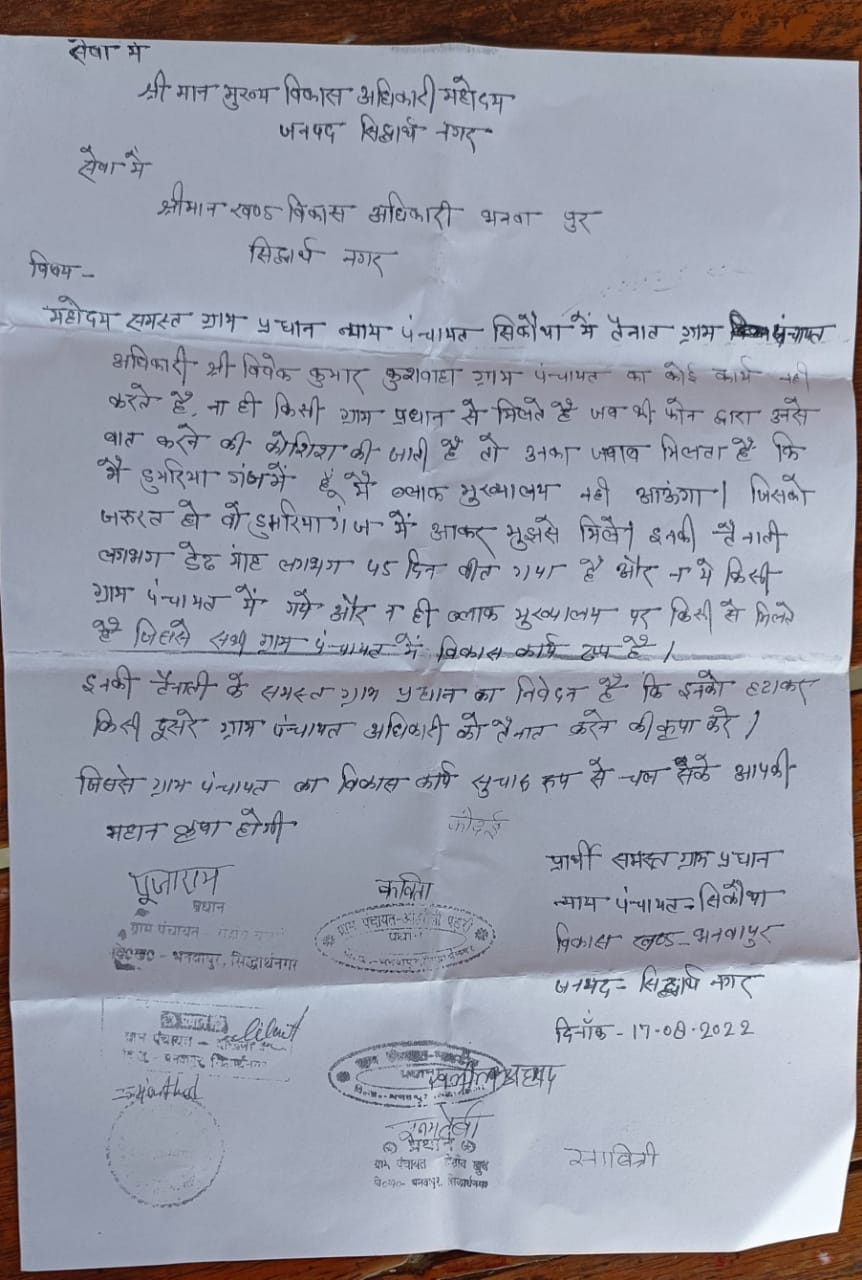 सेवा में
श्री मान मुख्य विकास अधिकारी महोदय
जनपद सिद्धार्थ नगर
सेवा में
श्रीमान खण्ड विकास अधिकारी भनवा पुर
सिद्धार्थ नगर
विषय -
महोदय समस्त ग्राम प्रधान न्याय पंचायत सिकौथा में तैनात ग्राम पंचायत
अधिकारी श्री विवेक कुमार कुशवाहा ग्राम पंचायत का कोई कार्य नही
करते है, ना ही किसी ग्राम प्रधान से मिलते है जब भी फोन द्वारा उनसे
बात करने की कोशिश की जाती है तो उनका जवाब मिलता है कि
मै डुमरिया गंज में हूं मै ब्लाक मुख्यालय नही आऊंगा। जिसको
जरुरत हो वो डुमरिया गंज में आकर मुझसे मिले। इनकी तैनाती
लगभग डेढ माह लगभग 45 दिन बीत गया है और न ये किसी
ग्राम पंचायत में गये और न ही ब्लाक मुख्यालय पर किसी से मिलते
है जिससे सभी ग्राम पंचायत में विकास कार्य ठप है।
इनकी तैनाती के समस्त ग्राम प्रधान का निवेदन है कि इनको हटाकर
किसी दूसरे ग्राम पंचायत अधिकारी को तैनात करने की कृपा करे।
जिससे ग्राम पंचायत का विकास कार्य सुचारु रूप से चल सके आपकी
महान कृपा होगी
कोदई
प्रार्थी समस्त ग्राम प्रधान
न्याय पंचायत - सिकौथा
विकास खण्ड - भनवापुर
जनपद - सिद्धार्थ नगर
दिनाँक - 17-08-2022
पूजाराम
प्रधान
ग्राम पंचायत -
भनवापुर, सिद्धार्थनगर
कविता
ग्राम पंचायत -
प्रधान
ग्राम पंचायत -
प्रधान
ग्राम पंचायत
वि०ख०- भनवापुर, सिद्धार्थनगर
सावित्री